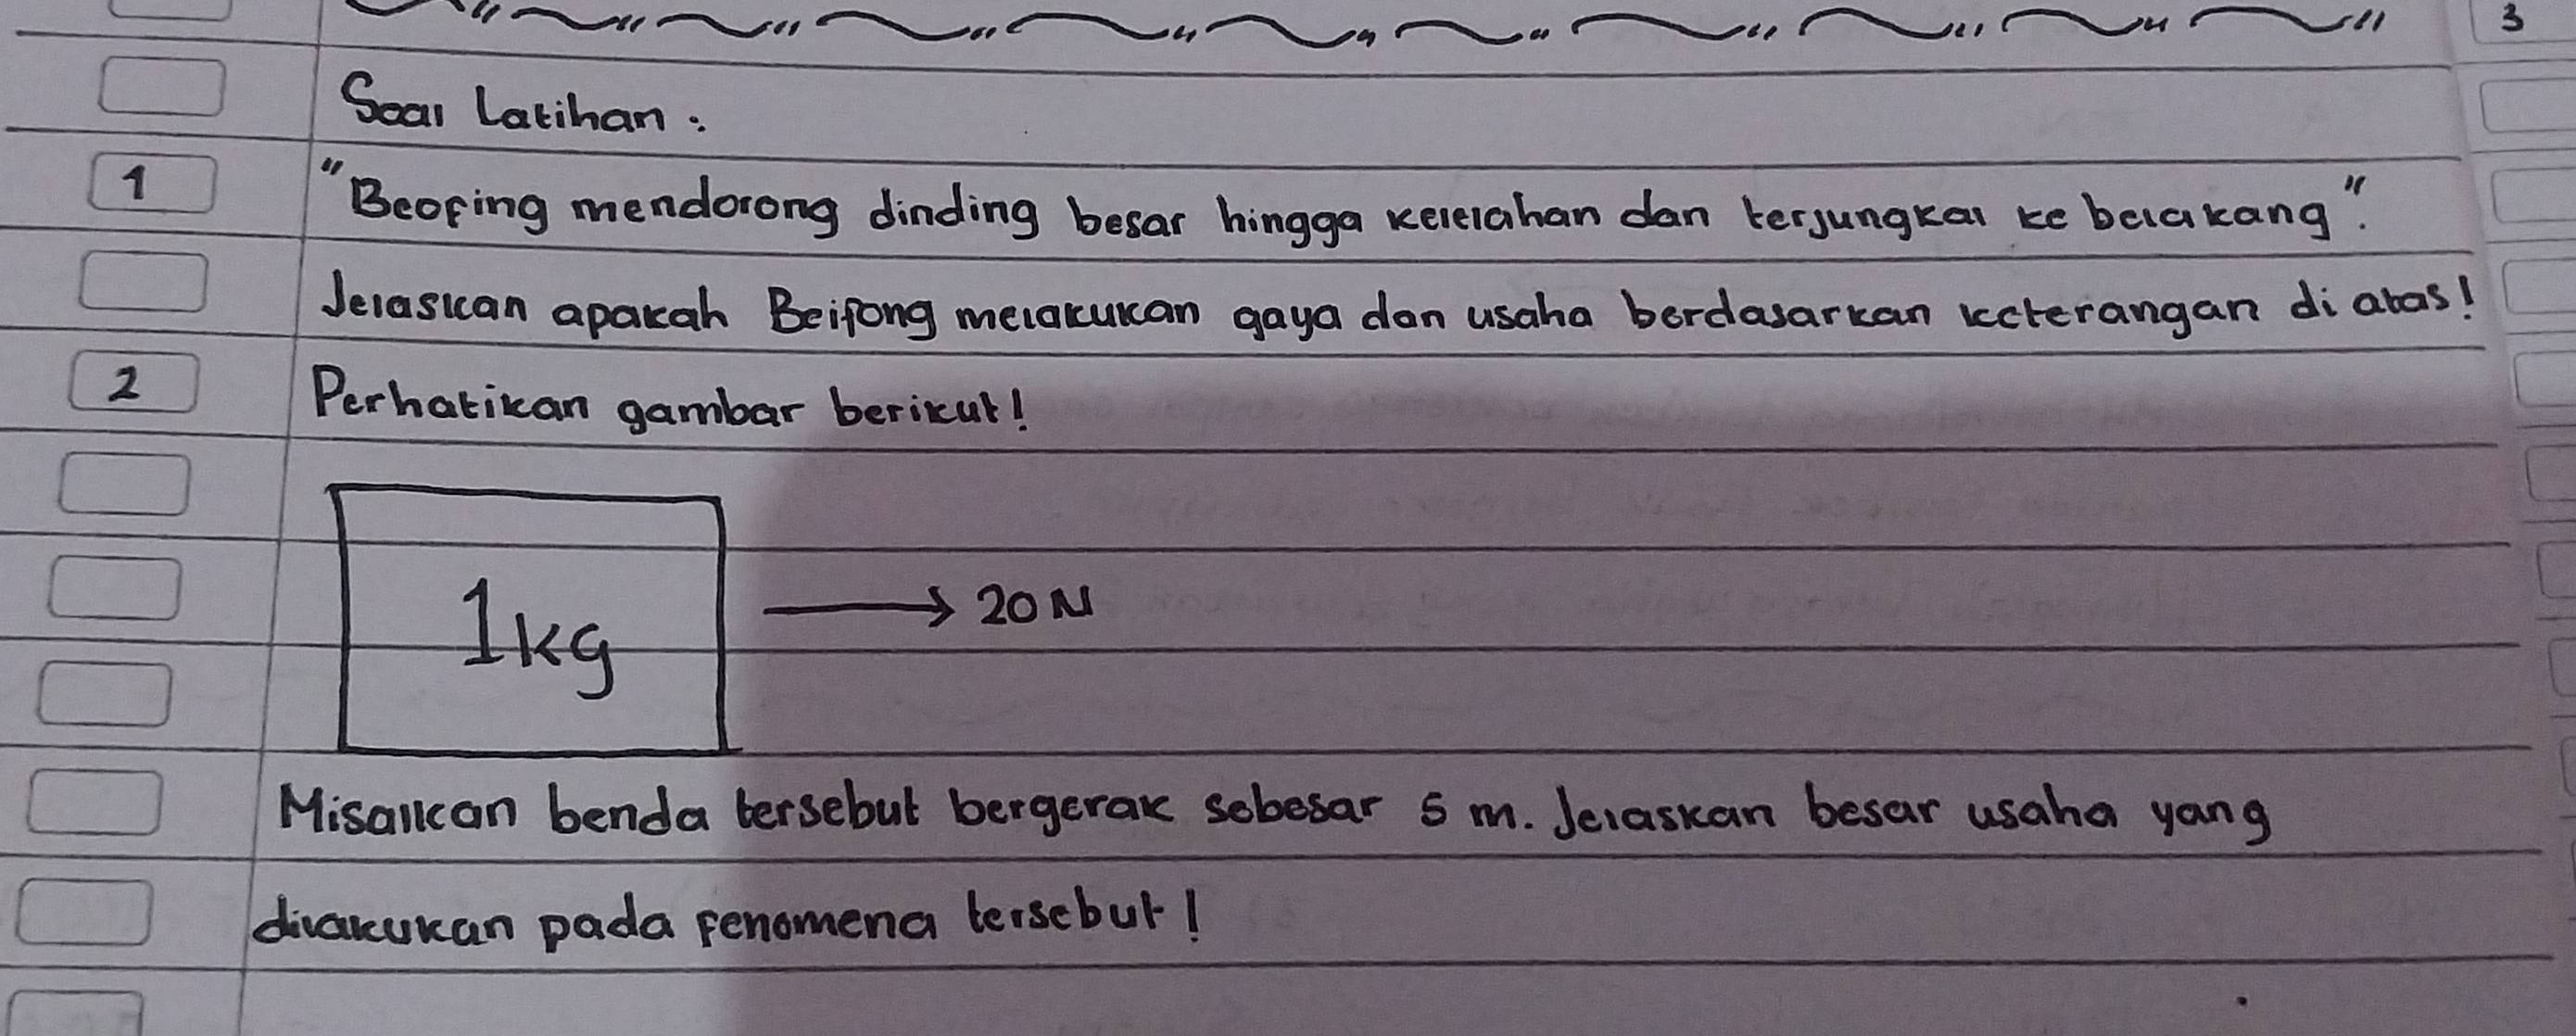 3
Soal Latihan :
1 "Beofing mendorong dinding besar hingga kelelahan dan terjungkal ke belakang".
Jelaskan apakah Beifong melakukan gaya dan usaha berdasarkan keterangan di atas!
2 Perhatikan gambar berikut!
1 kg → 20 N
Misalkan benda tersebut bergerak sebesar 5 m. Jelaskan besar usaha yang
dilakukan pada fenomena tersebut!